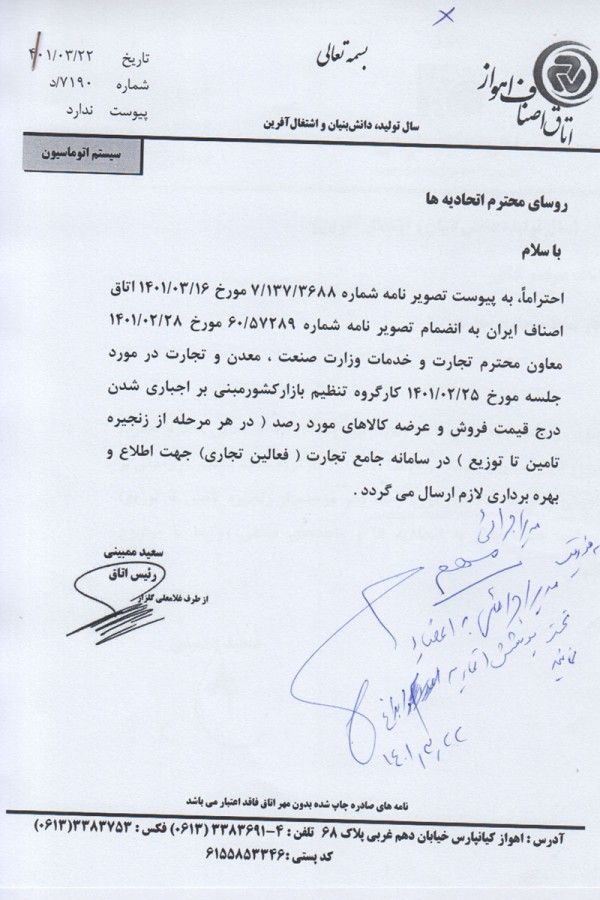 بسمه تعالی
اتاق اصناف اهواز
تاریخ ۴۰۱/۰۳/۲۲
شماره ۷۱۹۰/د
پیوست ندارد
سال تولید، دانش‌بنیان و اشتغال‌آفرین
سیستم اتوماسیون
روسای محترم اتحادیه ها
با سلام
احتراماً، به پیوست تصویر نامه شماره ۷/۱۳۷/۳۶۸۸ مورخ ۱۴۰۱/۰۳/۱۶ اتاق
اصناف ایران به انضمام تصویر نامه شماره ۶۰/۵۷۲۸۹ مورخ ۱۴۰۱/۰۲/۲۸
معاون محترم تجارت و خدمات وزارت صنعت ، معدن و تجارت در مورد
جلسه مورخ ۱۴۰۱/۰۲/۲۵ کارگروه تنظیم بازارکشورمبنی بر اجباری شدن
درج قیمت فروش و عرضه کالاهای مورد رصد ( در هر مرحله از زنجیره
تامین تا توزیع ) در سامانه جامع تجارت ( فعالین تجاری) جهت اطلاع و
بهره برداری لازم ارسال می گردد .
سعید ممبینی
رئیس اتاق
از طرف غلامعلی گلزار
مدیر اجرائی
مهم
مدیر اجرائی به اعضاء
تحت پوشش اتحادیه ابلاغ
نمائید
۱۴۰۱/۳/۲۲
نامه های صادره چاپ شده بدون مهر اتاق فاقد اعتبار می باشد
آدرس : اهواز کیانپارس خیابان دهم غربی پلاک ۶۸ تلفن : ۴-۳۳۸۳۶۹۱ (۰۶۱۳) فکس : ۳۳۸۳۷۵۳(۰۶۱۳)
کد پستی :۶۱۵۵۸۵۳۳۴۶